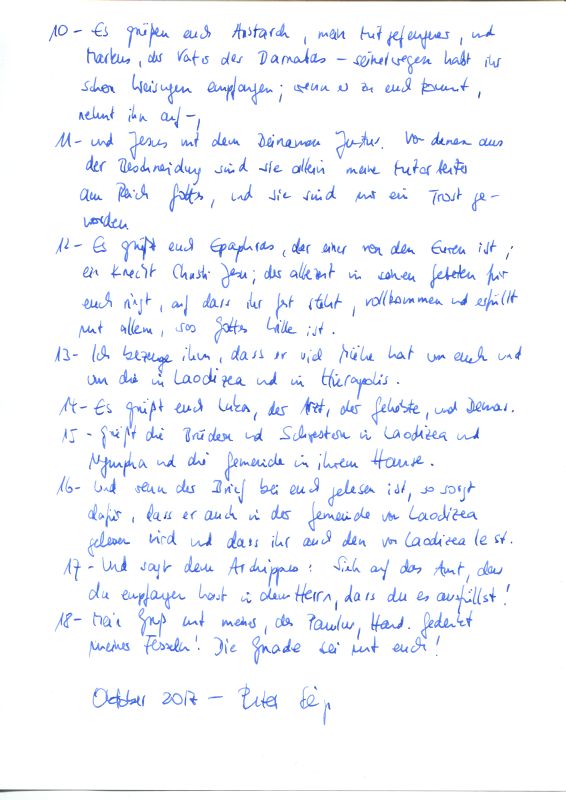 10 - Es grüßen euch Aristarch, mein Mitgefangener, und
Markus, der Vetter des Barnabas – seinetwegen habt ihr
schon Weisungen empfangen; wenn er zu euch kommt,
nehmt ihn auf –,
11 - und Jesus mit dem Beinamen Justus. Von denen aus
der Beschneidung sind sie allein meine Mitarbeiter
am Reich Gottes, und sie sind mir ein Trost ge-
worden
12 - Es grüßt euch Epaphras, der einer von den Euren ist;
ein Knecht Christi Jesu; der allezeit in seinen Gebeten für
euch ringt, auf dass ihr fest steht, vollkommen und erfüllt
mit allem, was Gottes Wille ist.
13 - Ich bezeuge ihm, dass er viel Mühe hat um euch und
um die in Laodizea und in Hierapolis.
14 - Es grüßt euch Lukas, der Arzt, der Geliebte, und Demas.
15 - Grüßt die Brüder und Schwestern in Laodizea und
Nympha und die Gemeinde in ihrem Hause.
16 - Und wenn der Brief bei euch gelesen ist, so sorgt
dafür, dass er auch in der Gemeinde von Laodizea
gelesen wird und dass ihr auch den von Laodizea lest.
17 - Und sagt dem Archippus: Sieh auf das Amt, das
du empfangen hast in dem Herrn, dass du es ausfüllst!
18 - Mein Gruß mit meiner, des Paulus, Hand. Gedenkt
meiner Fesseln! Die Gnade sei mit euch!
Oktober 2017 – Peter